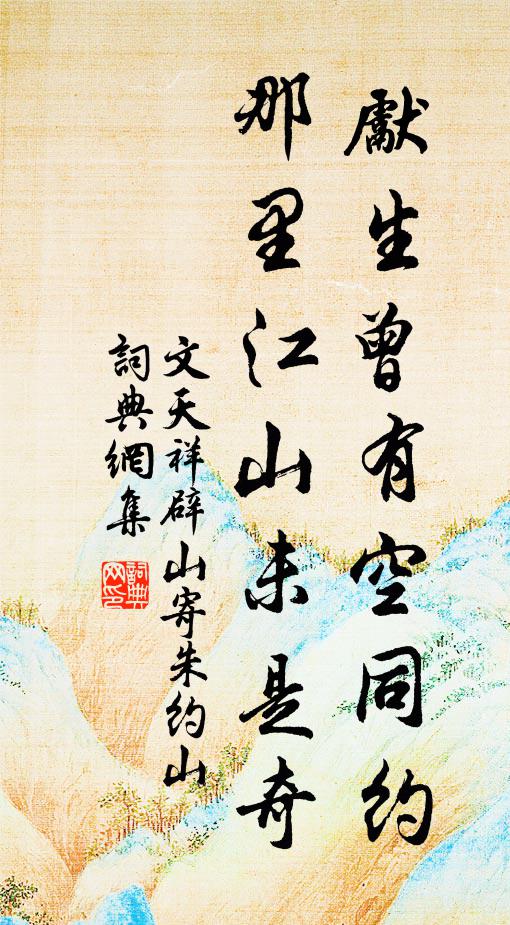 獻生曾有空同約
那里江山未是奇
文天祥辟山寄朱約山
詞典網集
詞典